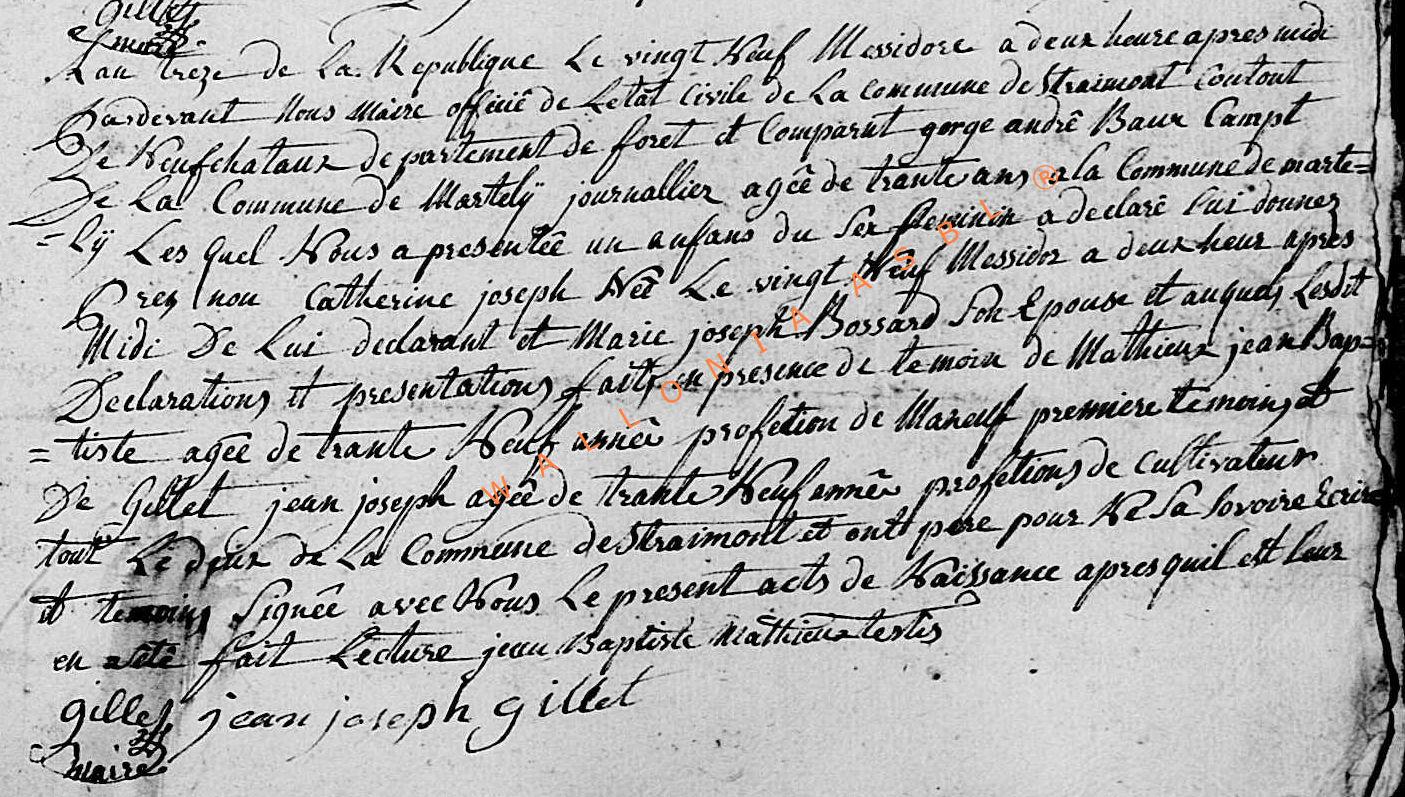 Gillet
maire
Lan treze de La Republique Le vingt Neuf Messidore a deux heure apres midi
Pardevant Nous Maire officiê de Letat Civile de La Commune de Straimont Contont
De Neufchataux departement de foret et Comparut gorge andrê Baux Campt
De La Commune de Martelÿ journallier agêe de trante ans a la Commune de marte=
=lÿ Les quel Nous a presentêe un enfans du Sex feminin a declarê lui donner
Prez non Catherine joseph Nêe Le vingt Neuf Messidor a deux heur apres
Midi De Lui declarant et Marie joseph Bossard Son Epouse et auquels Lesdit
Declarations et presentations faits en presence de temoin de Mathieux jean Bap=
=tiste agêe de trante Neuf annêe profetion de Mareuf premiere temoins et
De Gillet jean joseph agêe de trante Neuf annêe profetions de Cultivateur
tout Le deux de La Commune de Straimont et ont pere pour Ne Sa Sovoire Ecrire
et temoins Signêe avec Nous Le present acts de Naissance apres quil est leur
en a êtê fait Lecture jean Baptiste Mathieux testis
Gillet jean joseph Gillet
maire
WALLONIA ASBL ®